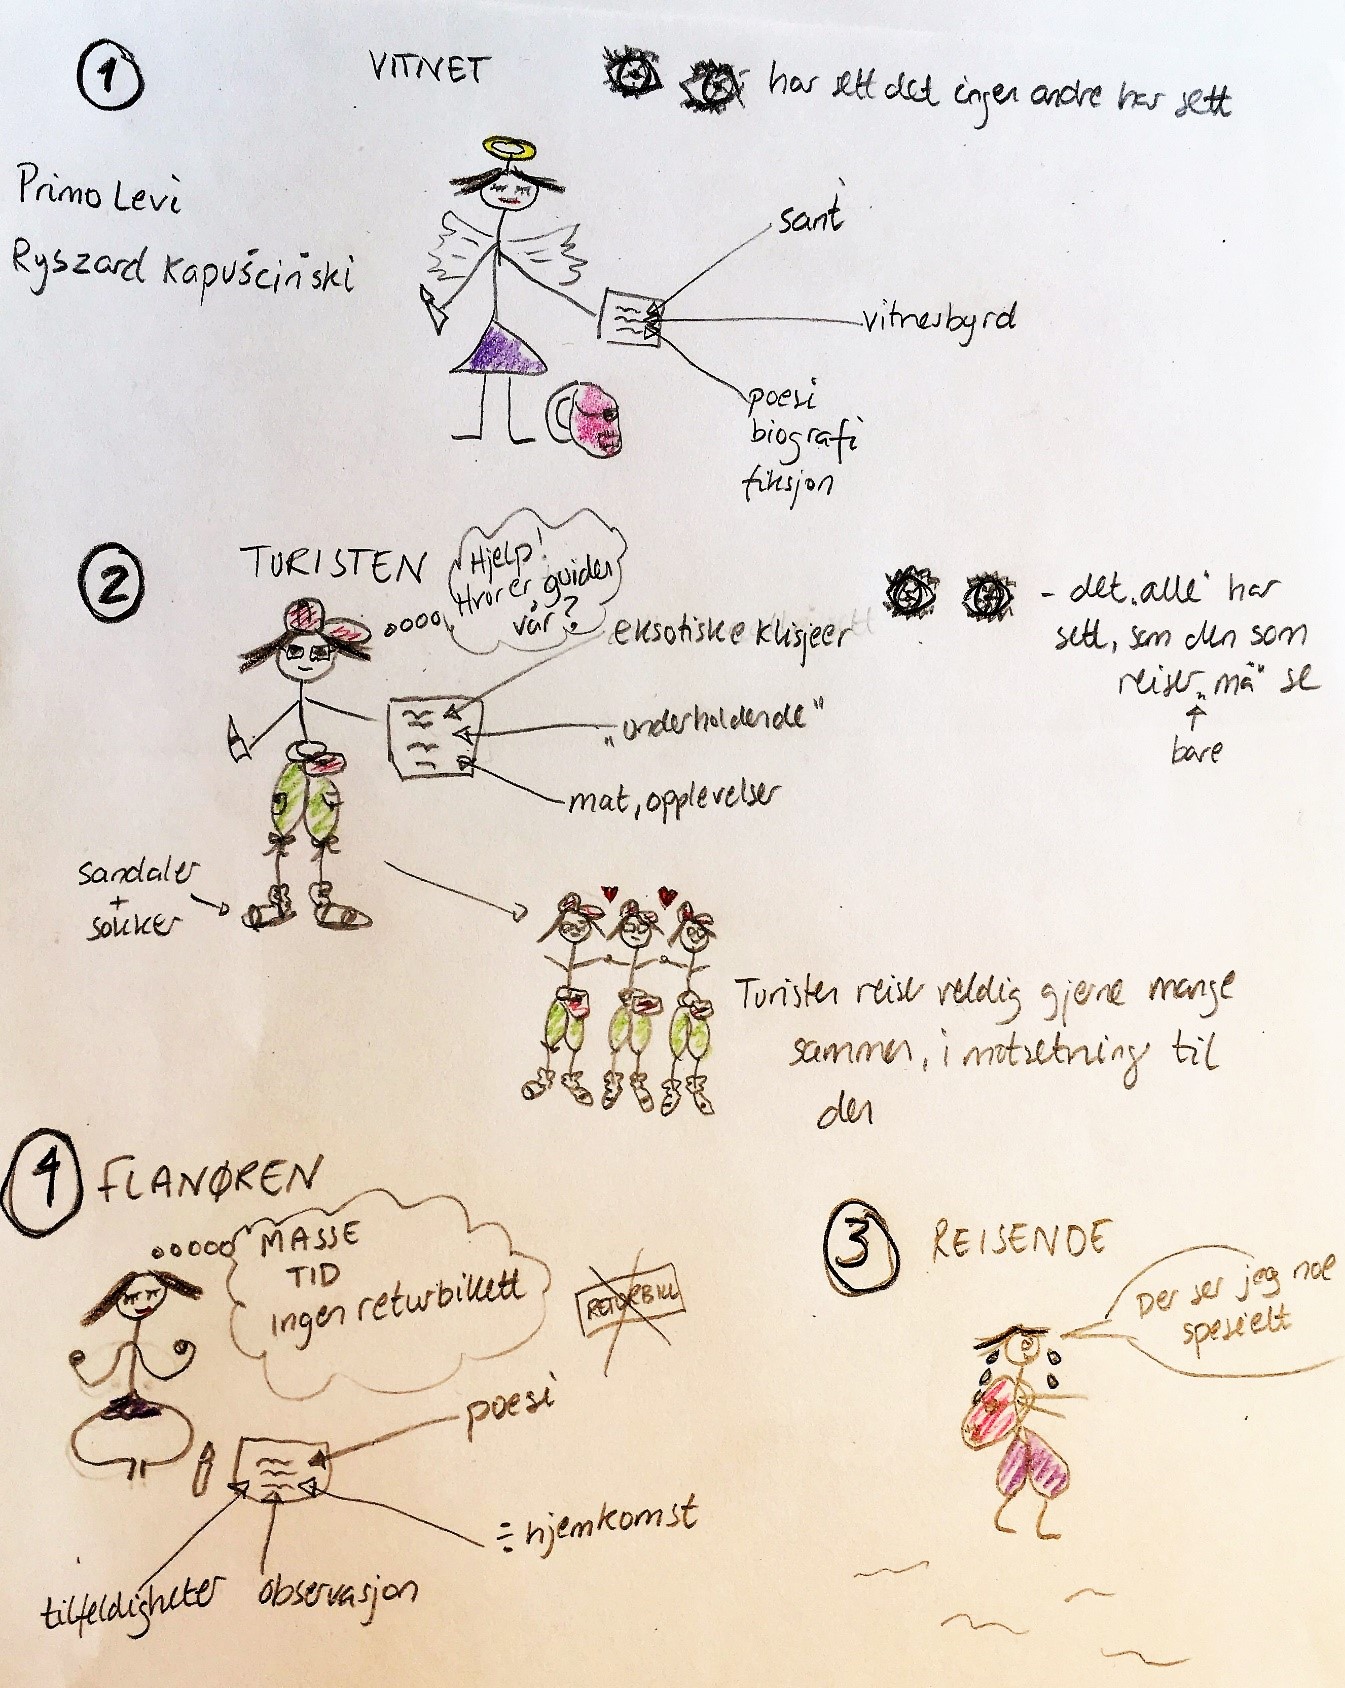 1
VITNET
har sett det ingen andre har sett
Primo Levi
Ryszard Kapuściński
sant
vitnesbyrd
poesi
biografi
fiksjon
2
TURISTEN
Hjelp!
Hvor er guiden
vår?
eksotiske klisjeer
"underholdende"
mat, opplevelser
- det "alle" har
sett, som den som
reiser "må" se
bare
sandaler
+
sokker
Turisten reiser veldig gjerne mange
sammen, i motsetning til
den
3
REISENDE
Der ser jeg noe
spesielt
4
FLANØREN
MASSE
TID
ingen returbillett
RETURBILL
poesi
÷ hjemkomst
tilfeldigheter
observasjon